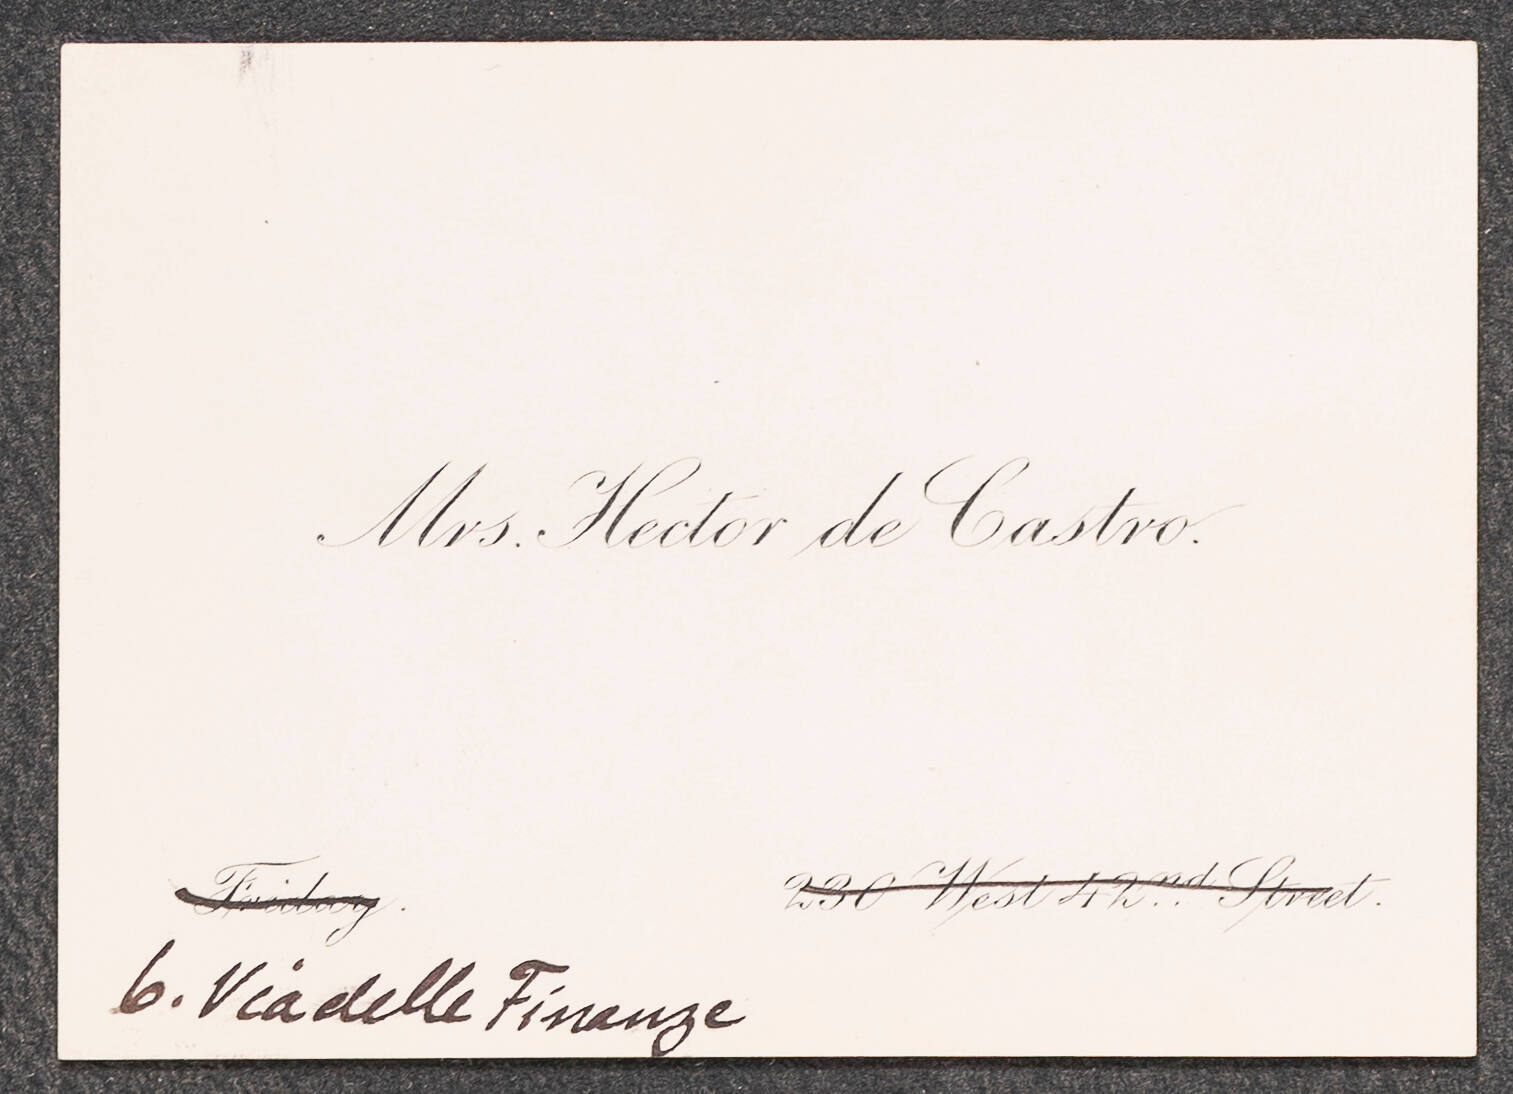 Mrs. Hector de Castro.
Friday.
230 West 42nd Street.
6. Via delle Finanze